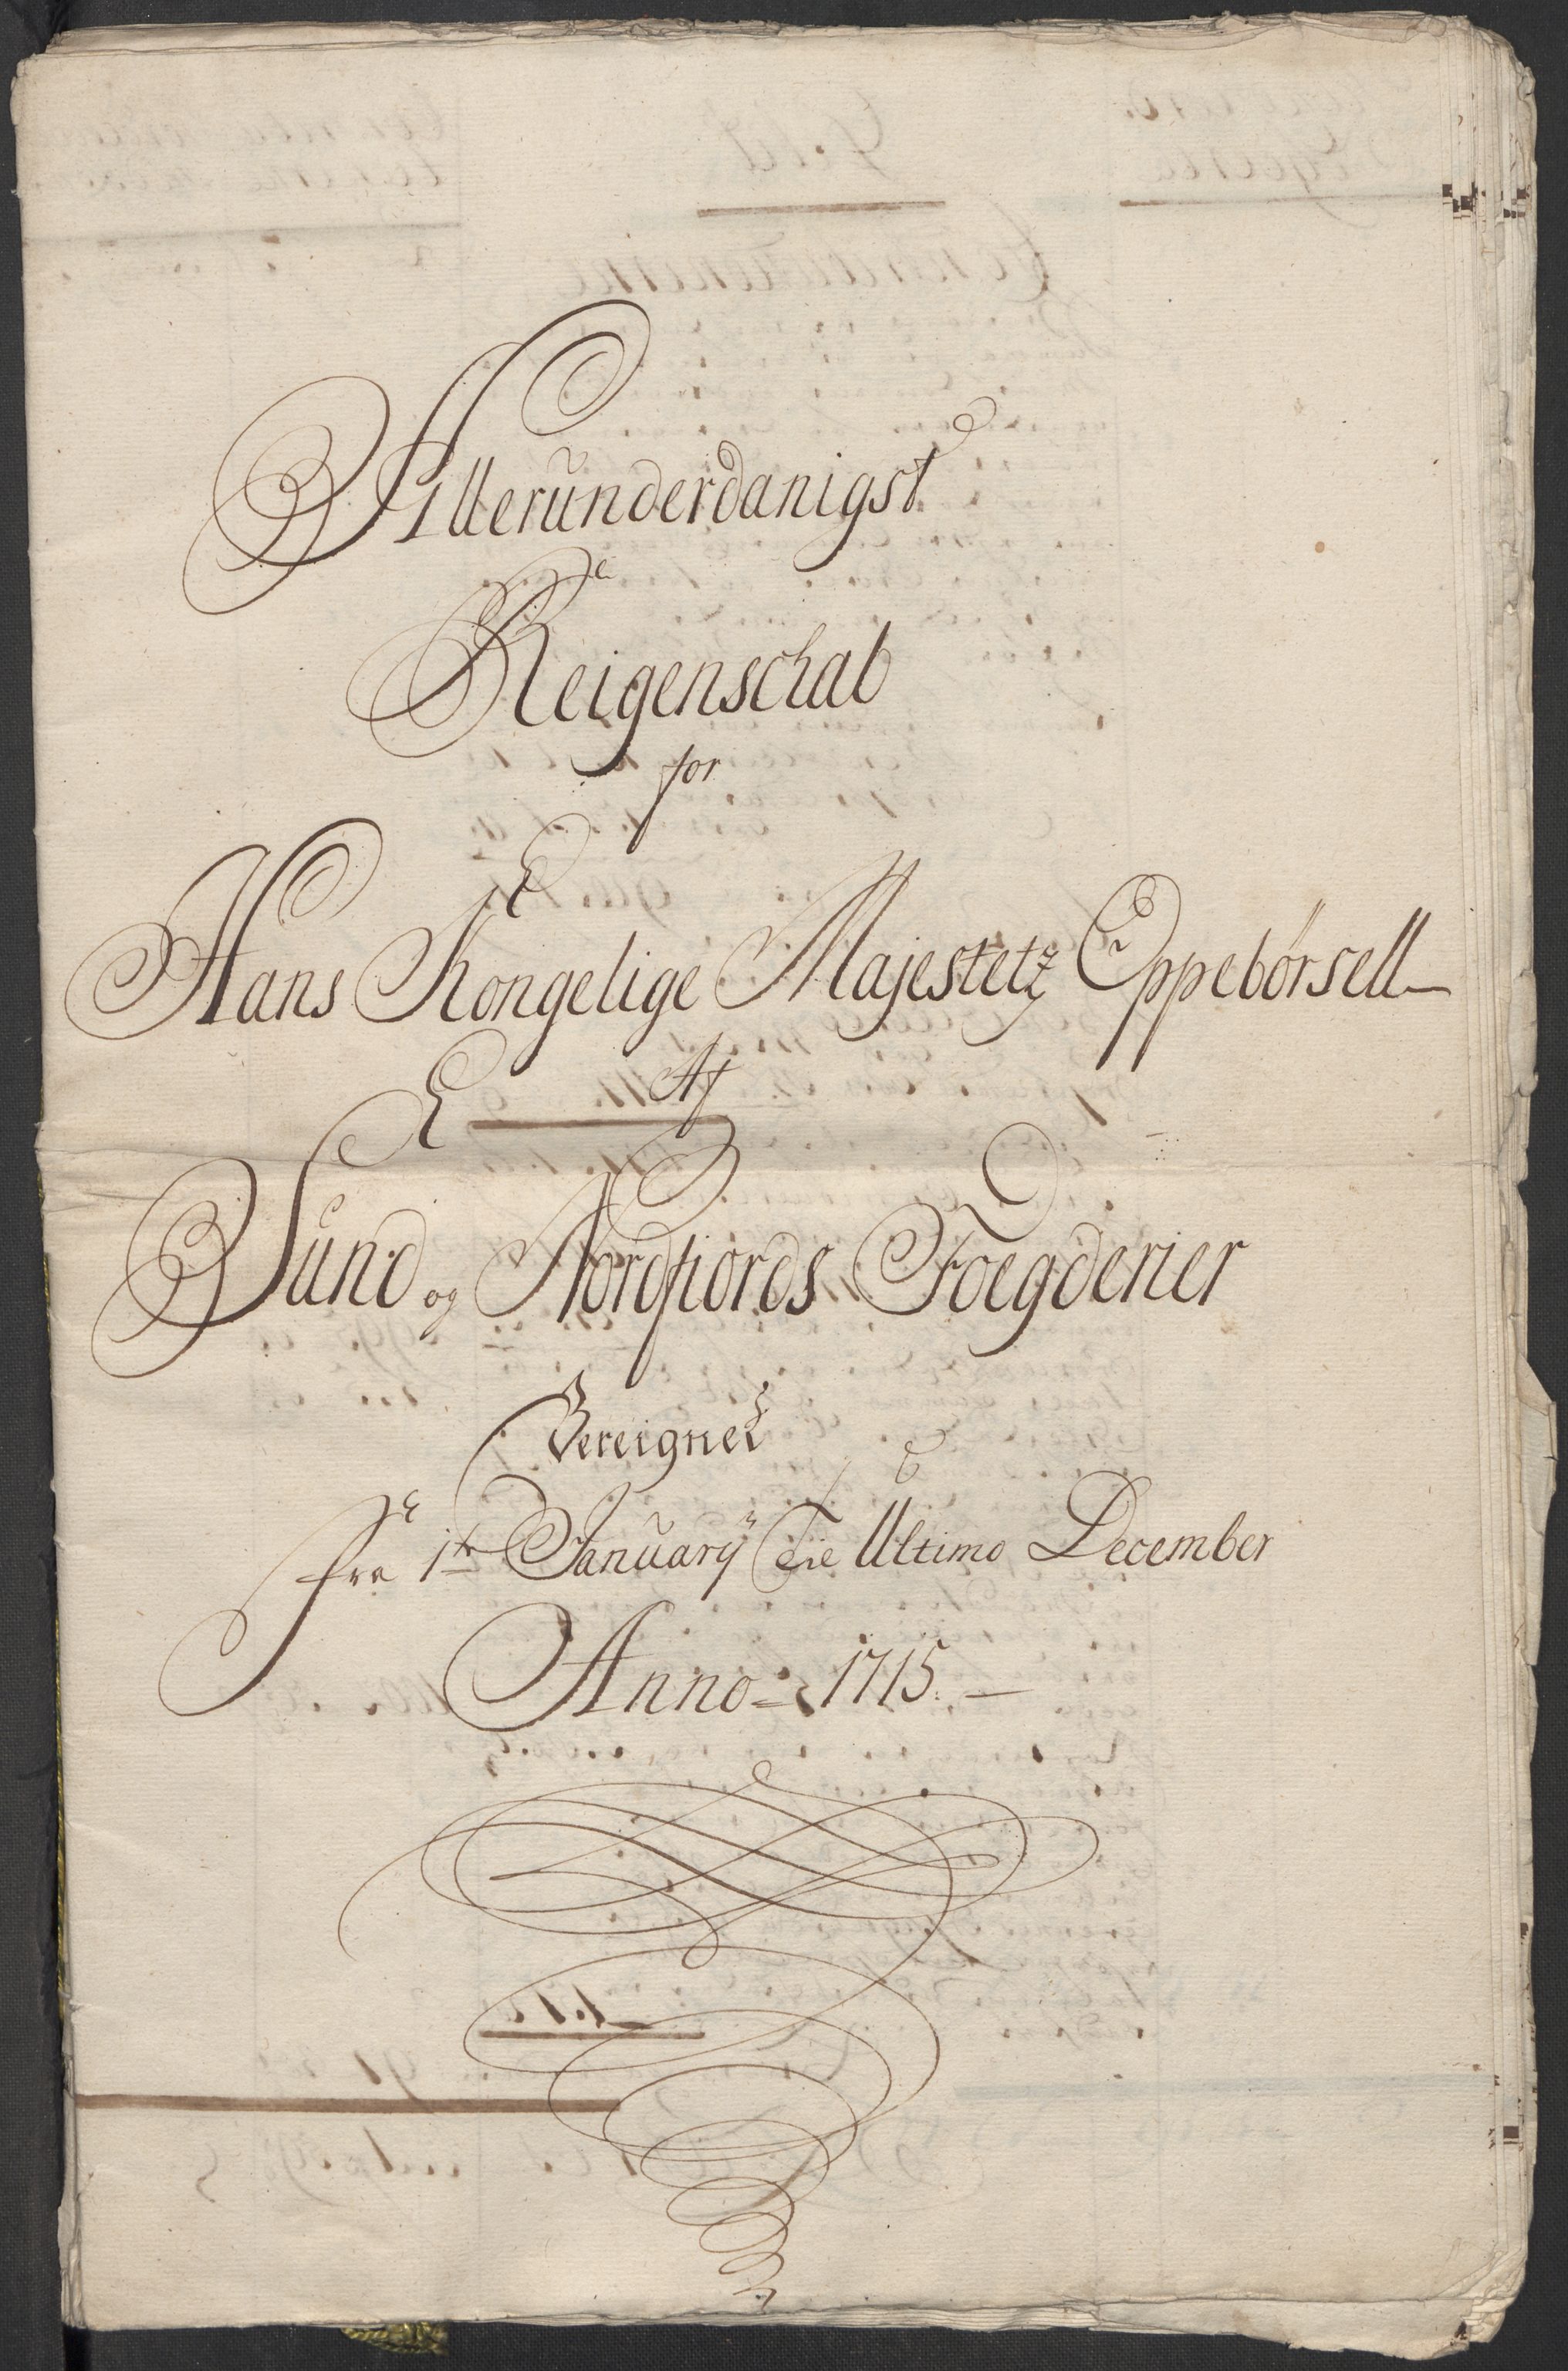 Allerunderdanigst
Reigenschab
for
Hans Kongelige Majestetz Oppebörsell
Af
Sund og Nordfiords Foegderier
Bereignet
fra 1te January Til Ultimo December
Anno = 1715. —